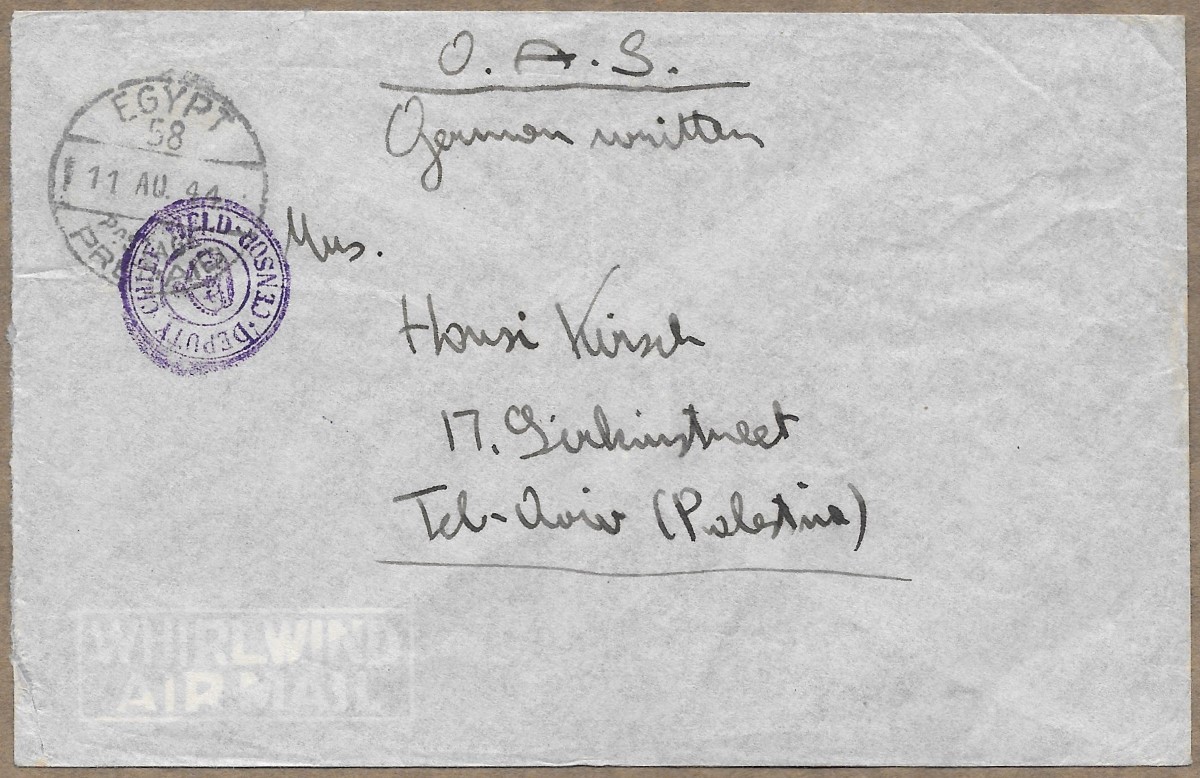 O. A. S.
German written
EGYPT
58
11 AU. 44
DEPUTY CHIEF FIELD CENSOR
Mrs.
Hansi Kirsch
17. Sirkinstreet
Tel-Aviv (Palestina)
WHIRLWIND
AIR MAIL